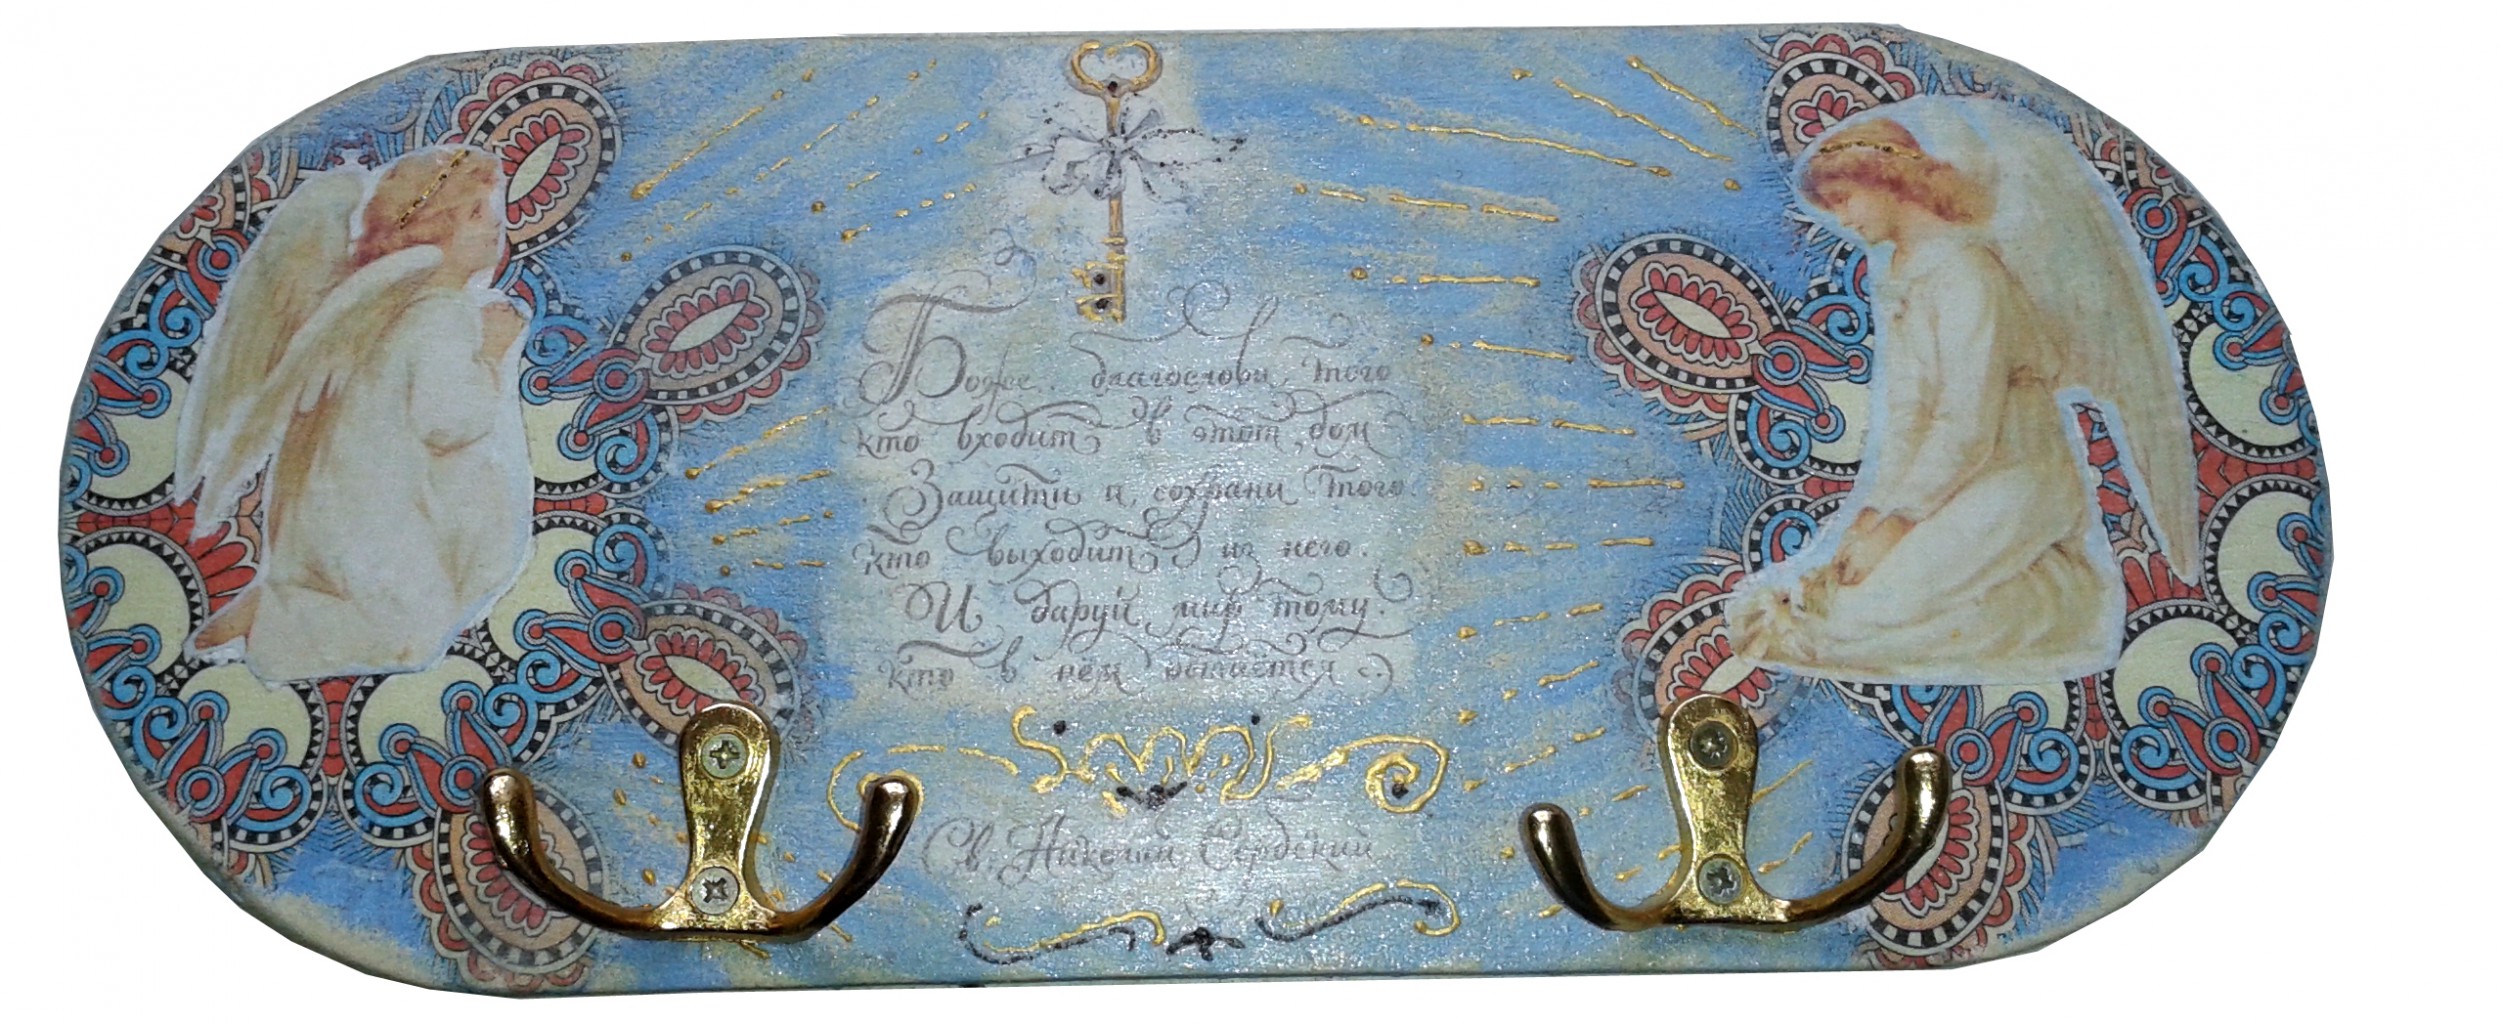 Боже, благослови того
кто входит в этот дом
Защити и сохрани того
кто выходит из него.
И даруй мир тому.
кто в нём остаётся.
Св. Николай Сербский